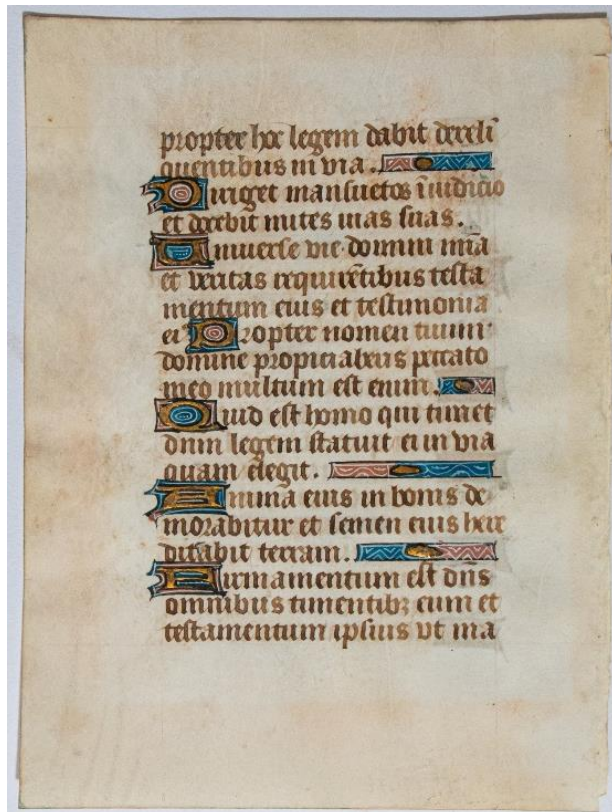 propter hoc legem dabit dereli
quentibus in via.
Diriget mansuetos i iudicio
et docebit mites uias suas.
Uniuerse vie domini mia
et veritas requirētibus testa
mentum eius et testimonia
ei Propter nomen tuum
domine propiciaberis peccato
meo multum est enim.
Quid est homo qui timet
dnm legem statuit ei in via
quam elegit.
Anima eius in bonis de
morabitur et semen eius here
ditabit terram.
Firmamentum est dns
omnibus timentibꝫ eum et
testamentum ipsius vt ma